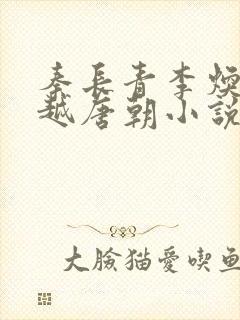 秦長青李煥
越唐朝小說
大臉猫愛喫鱼